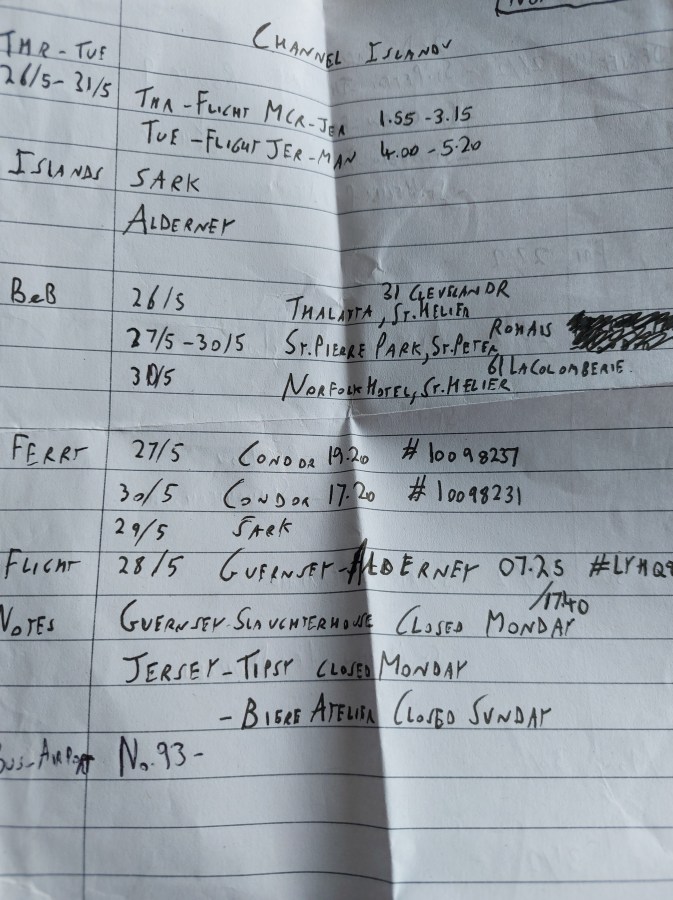 CHANNEL ISLANDS
THR-TUE
26/5-31/5
THR-FLIGHT MCR-JER 1.55-3.15
TUE-FLIGHT JER-MAN 4.00-5.20
ISLANDS SARK
ALDERNEY
B&B 26/5 THALATTA, ST.HELIER 31 CLEVELAND R
27/5-30/5 ST.PIERRE PARK, ST.PETER ROHAIS
30/5 NORFOLK HOTEL, ST.HELIER 61 LA COLOMBERIE.
FERRY 27/5 CONDOR 19.20 #10098237
30/5 CONDOR 17.20 #10098231
29/5 SARK
FLIGHT 28/5 GUERNSEY-ALDERNEY 07.25 /1740
NOTES GUERNSEY-SLAUGHTERHOUSE CLOSED MONDAY
JERSEY-TIPSY CLOSED MONDAY
-BIERE ATELIER CLOSED SUNDAY
BUS-AIRPORT No.93-